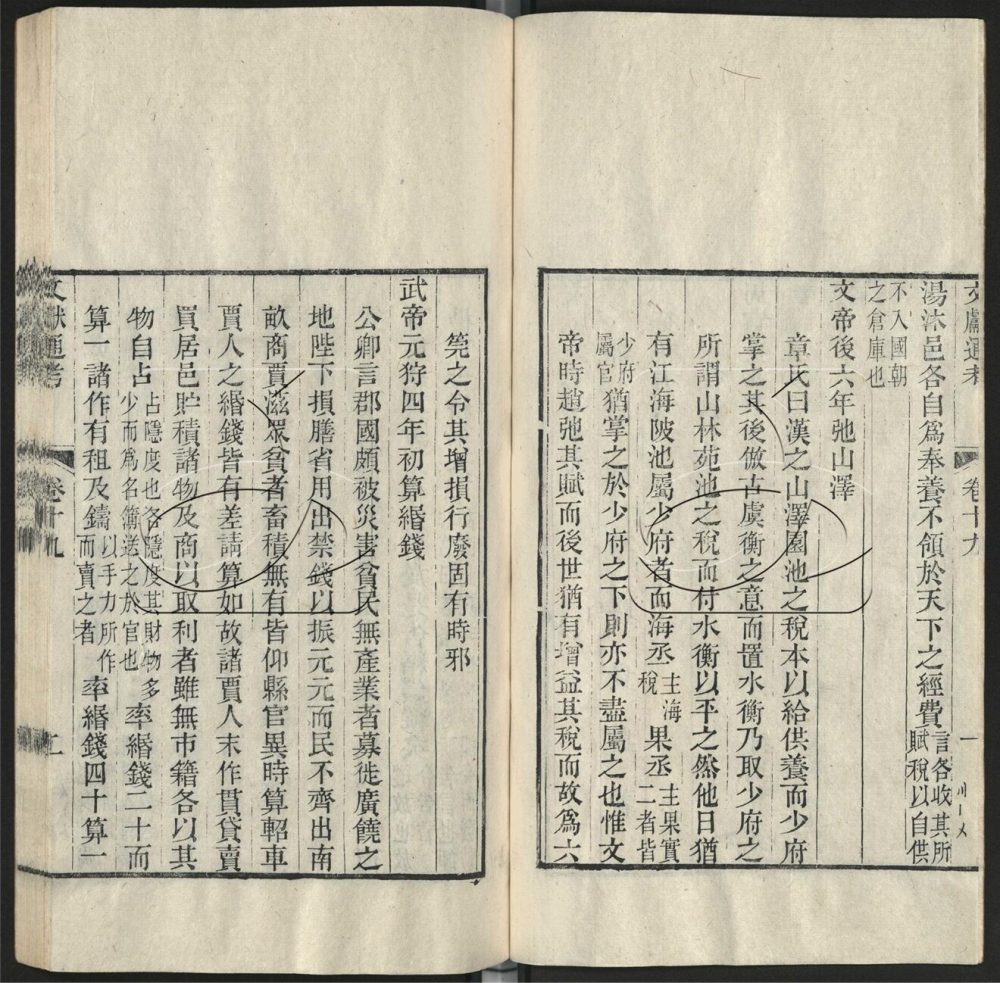 文獻通考 卷十九 一
湯沐邑各自爲奉養不領於天下之經費言各收其所賦稅以自供
不入國朝之倉庫也
文帝後六年弛山澤
章氏曰漢之山澤園池之稅本以給供養而少府
掌之其後倣古虞衡之意而置水衡乃取少府之
所謂山林苑池之稅而付水衡以平之然他日猶
有江海陂池屬少府者而海丞主海稅果丞主果實二者皆
少府屬官猶掌之於少府之下則亦不盡屬之也惟文
帝時趙弛其賦而後世猶有增益其稅而故爲六
筦之令其增損行廢固有時邪
武帝元狩四年初算緡錢
公卿言郡國頗被災害貧民無產業者募徙廣饒之
地陛下損膳省用出禁錢以振元元而民不齊出南
畝商賈滋眾貧者畜積無有皆仰縣官異時算軺車
賈人之緡錢皆有差請算如故諸賈人末作貰貸賣
買居邑貯積諸物及商以取利者雖無市籍各以其
物自占占隱度也各隱度其財物多少而爲名簿送之於官也率緡錢二十而
算一諸作有租及鑄以手力所作而賣之者率緡錢四十算一
文獻通考 卷十九 二